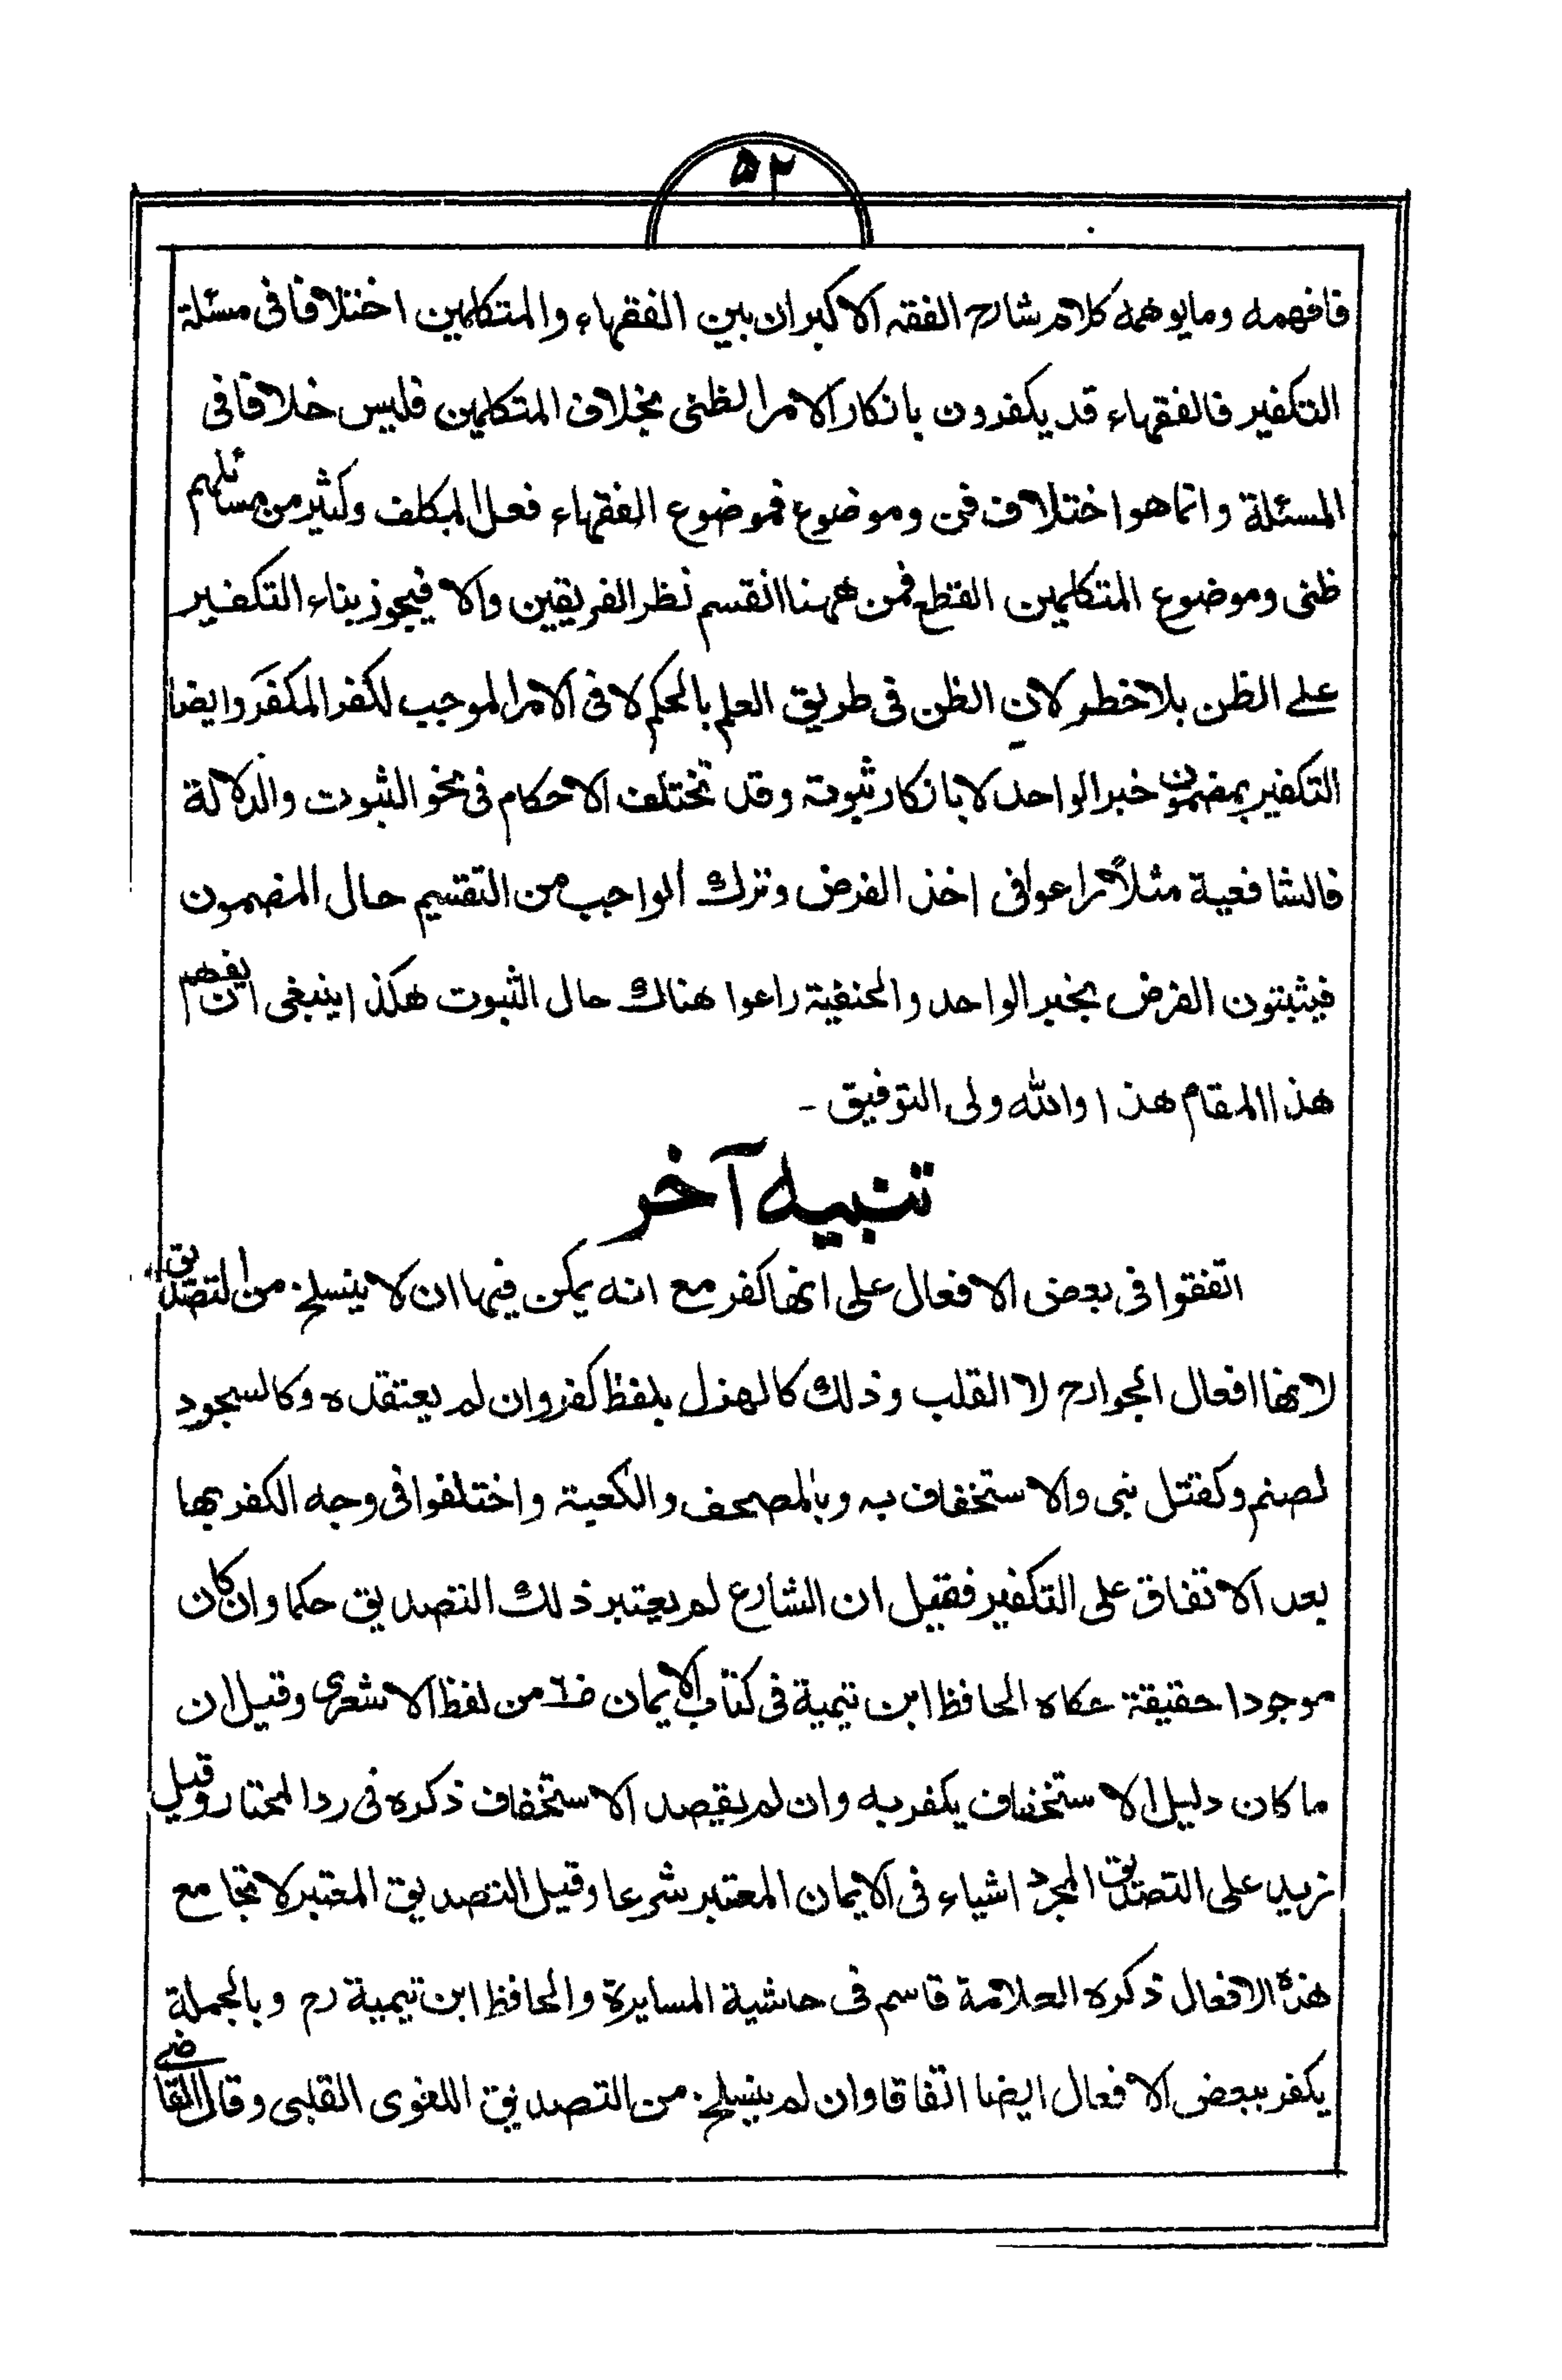 ۵۲
فافهمه ومايوهمه كلام شارح الفقه الاكبر ان بين الفقهاء والمتكلمين اختلافا فى مسئلة
التكفير فالفقهاء قد يكفرون بانكار الامر الظنى بخلاف المتكلمين فليس خلافا فى
المسئلة وانما هو اختلاف فن وموضوع فموضوع الفقهاء فعل المكلف وكثير من مسائلهم
ظنى وموضوع المتكلمين القطع فمن ههنا انقسم نظر الفريقين والا فيجوز بناء التكفير
على الظن بلا خطر لان الظن فى طريق العلم بالحكم لا فى الامر الموجب لكفر المكفَر وايضا
التكفير بمضمون خبر الواحد لا بانكار ثبوته وقد تختلف الاحكام فى نحو الثبوت والدلالة
فالشافعية مثلاً راعوا فى اخذ الفرض وترك الواجب من التقسيم حال المضمون
فيثبتون الفرض بخبر الواحد والحنفية راعوا هناك حال الثبوت هكذا ينبغى ان يفهم
هذا المقام هذا والله ولى التوفيق ـ
تنبيه آخر
اتفقوا فى بعض الافعال على انها كفر مع انه يمكن فيها ان لا ينسلخ من التصديق
لانها افعال الجوارح لا القلب وذلك كالهزل بلفظ كفر وان لم يعتقده وكالسجود
لصنم وكقتل نبى والاستخفاف به وبالمصحف والكعبة واختلفوا فى وجه الكفر بها
بعد الاتفاق على التكفير فقيل ان الشارع لم يعتبر ذلك التصديق حكما وان كان
موجودا حقيقة حكاه الحافظ ابن تيمية فى كتاب الايمان من لفظ الاشعرى وقيل ان
ما كان دليل الاستخفاف يكفر به وان لم يقصد الاستخفاف ذكره فى رد المحتار وقيل
زيد على التصديق المجرد اشياء فى الايمان المعتبر شرعا وقيل التصديق المعتبر لا تجامع
هذه الافعال ذكره العلامة قاسم فى حاشية المسايرة والحافظ ابن تيمية رح وبالجملة
يكفر ببعض الافعال ايضا اتفاقا وان لم ينسلخ من التصديق اللغوى القلبى وقال القاضى